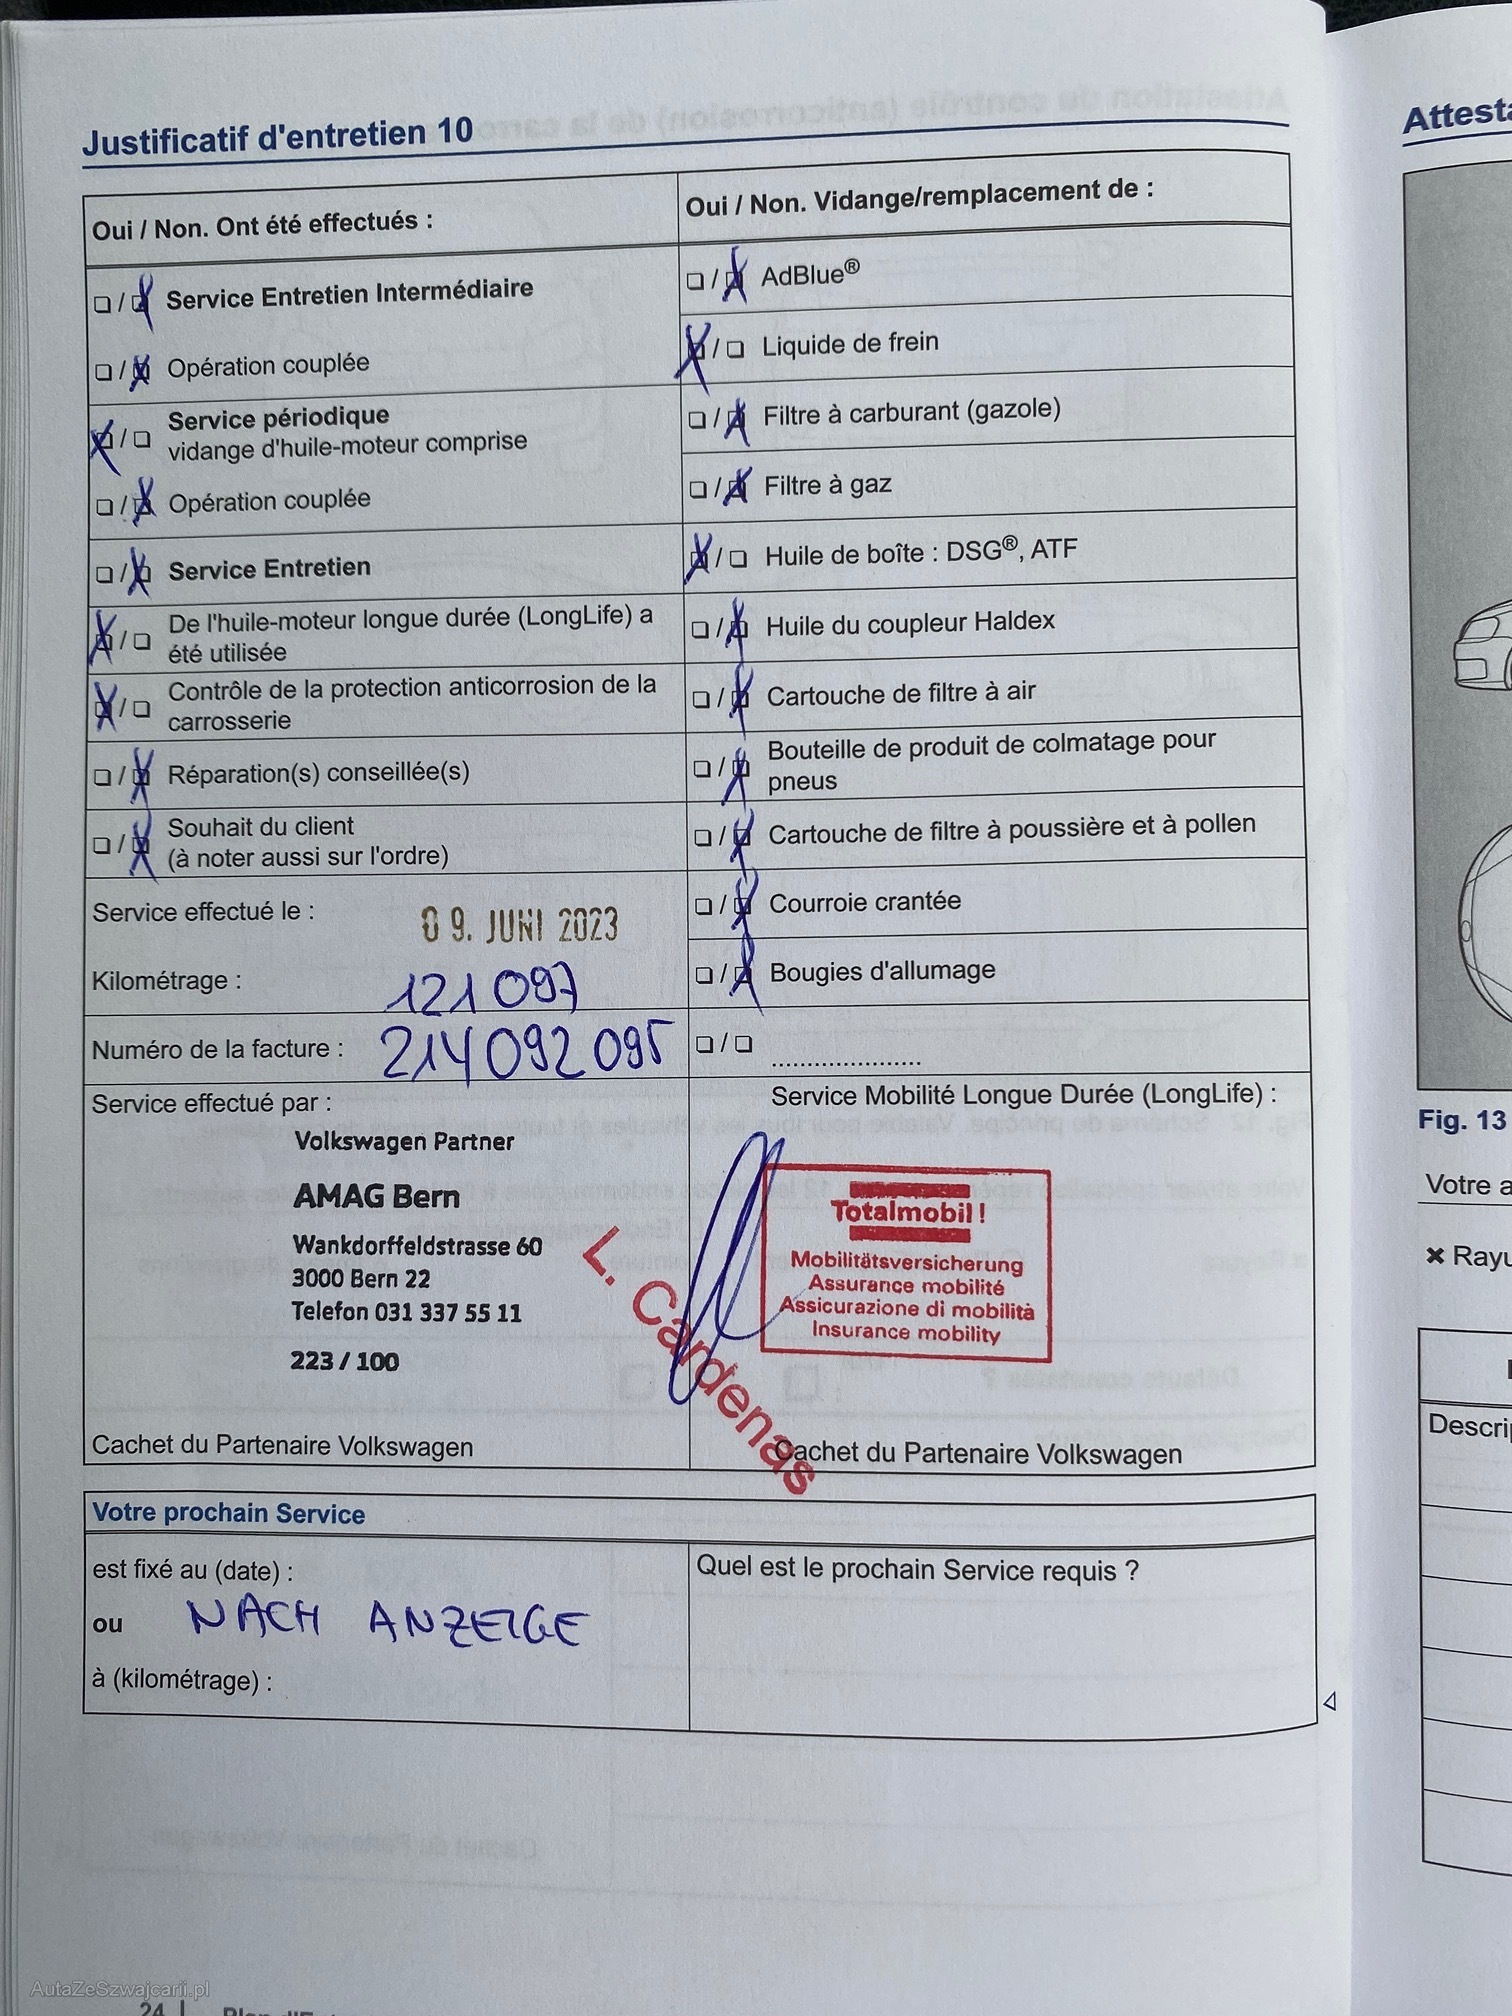 Justificatif d'entretien 10
Oui / Non. Ont été effectués :
❏ / ❏ Service Entretien Intermédiaire
❏ / ❏ Opération couplée
❏ / ❏ Service périodique
vidange d'huile-moteur comprise
❏ / ❏ Opération couplée
❏ / ❏ Service Entretien
❏ / ❏ De l'huile-moteur longue durée (LongLife) a
été utilisée
❏ / ❏ Contrôle de la protection anticorrosion de la
carrosserie
❏ / ❏ Réparation(s) conseillée(s)
❏ / ❏ Souhait du client
(à noter aussi sur l'ordre)
Service effectué le : 09. JUNI 2023
Kilométrage : 121 097
Numéro de la facture : 214 092 095
Oui / Non. Vidange/remplacement de :
❏ / ❏ AdBlue®
❏ / ❏ Liquide de frein
❏ / ❏ Filtre à carburant (gazole)
❏ / ❏ Filtre à gaz
❏ / ❏ Huile de boîte : DSG®, ATF
❏ / ❏ Huile du coupleur Haldex
❏ / ❏ Cartouche de filtre à air
❏ / ❏ Bouteille de produit de colmatage pour
pneus
❏ / ❏ Cartouche de filtre à poussière et à pollen
❏ / ❏ Courroie crantée
❏ / ❏ Bougies d'allumage
❏ / ❏ ......................
Service effectué par :
Volkswagen Partner
AMAG Bern
Wankdorffeldstrasse 60
3000 Bern 22
Telefon 031 337 55 11
223 / 100
Cachet du Partenaire Volkswagen
L. Cardenas
Service Mobilité Longue Durée (LongLife) :
Totalmobil!
Mobilitätsversicherung
Assurance mobilité
Assicurazione di mobilità
Insurance mobility
Cachet du Partenaire Volkswagen
Votre prochain Service
est fixé au (date) :
ou NACH ANZEIGE
à (kilométrage) :
Quel est le prochain Service requis ?
Fig. 13
Votre
AutaZeSzwajcarii.pl
24